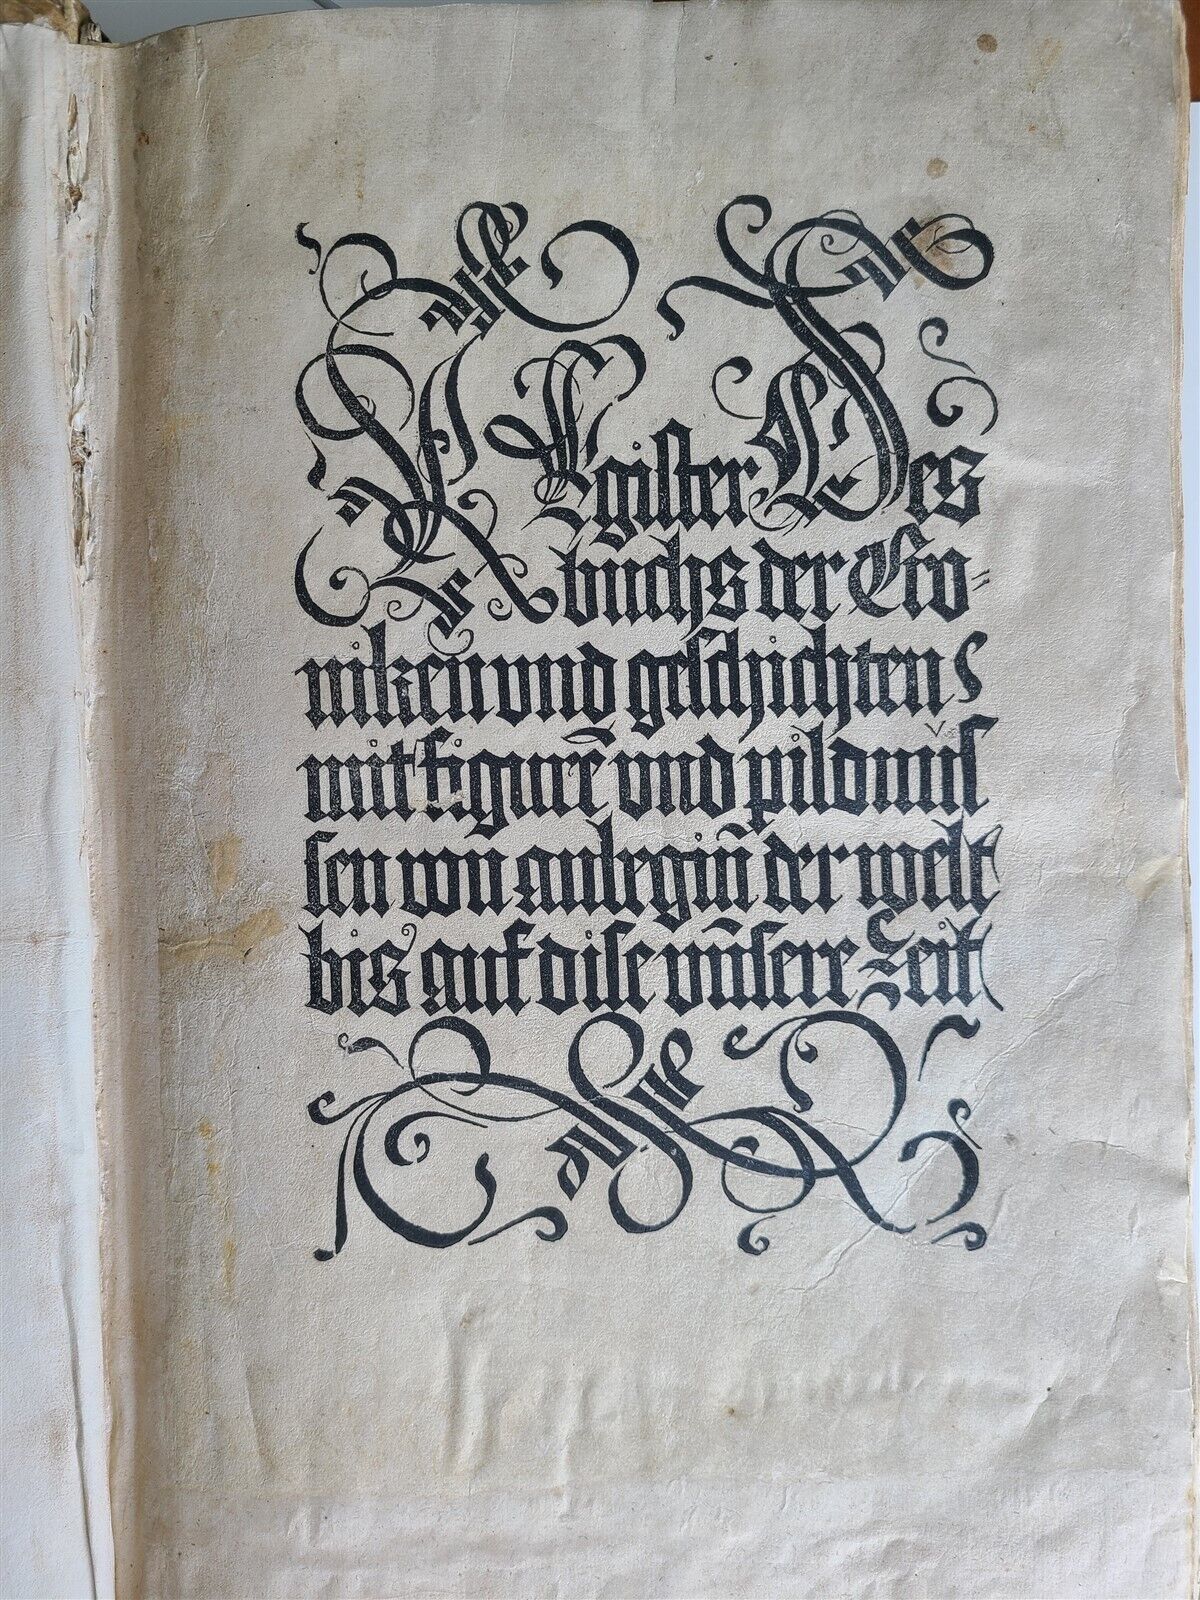 REgister Des
buchs der Cro-
niken und geschichten
mit figurē und pildnus
sen von anbegiñ der welt
bis auf dise unsere Zeit